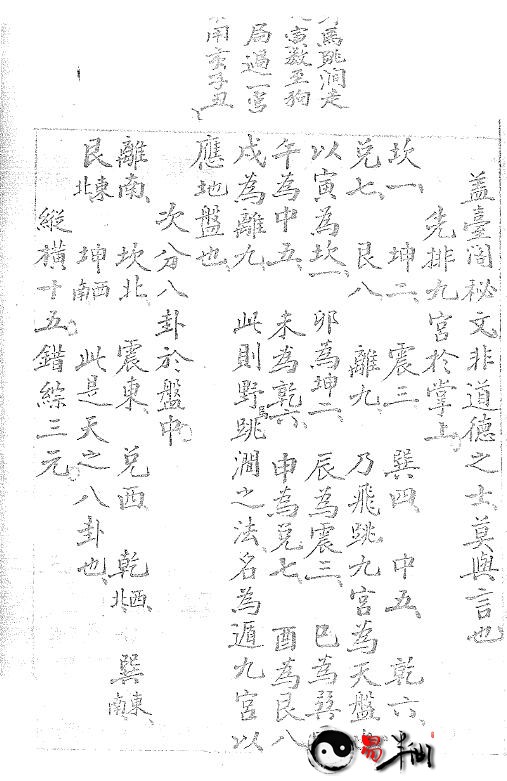 馬跳澗走
寅數至狗
局過一宮
用亥子丑
蓋臺閣秘文非道德之士莫與言也
先排九宮於掌上
坎一 坤二 震三 巽四 中五 乾六
兌七 艮八 離九 乃飛跳九宮為天盤
以寅為坎一 卯為坤一 辰為震三 巳為巽
午為中五 未為乾六 申為兌七 酉為艮八
戌為離九 此則野馬跳澗之法名為遁九宮以
應地盤也
次分八卦於盤中
離南 坎北 震東 兌西 乾西北 巽東南
艮東北 坤西南 此是天之八卦也
縱橫十五錯綜三元
易半仙